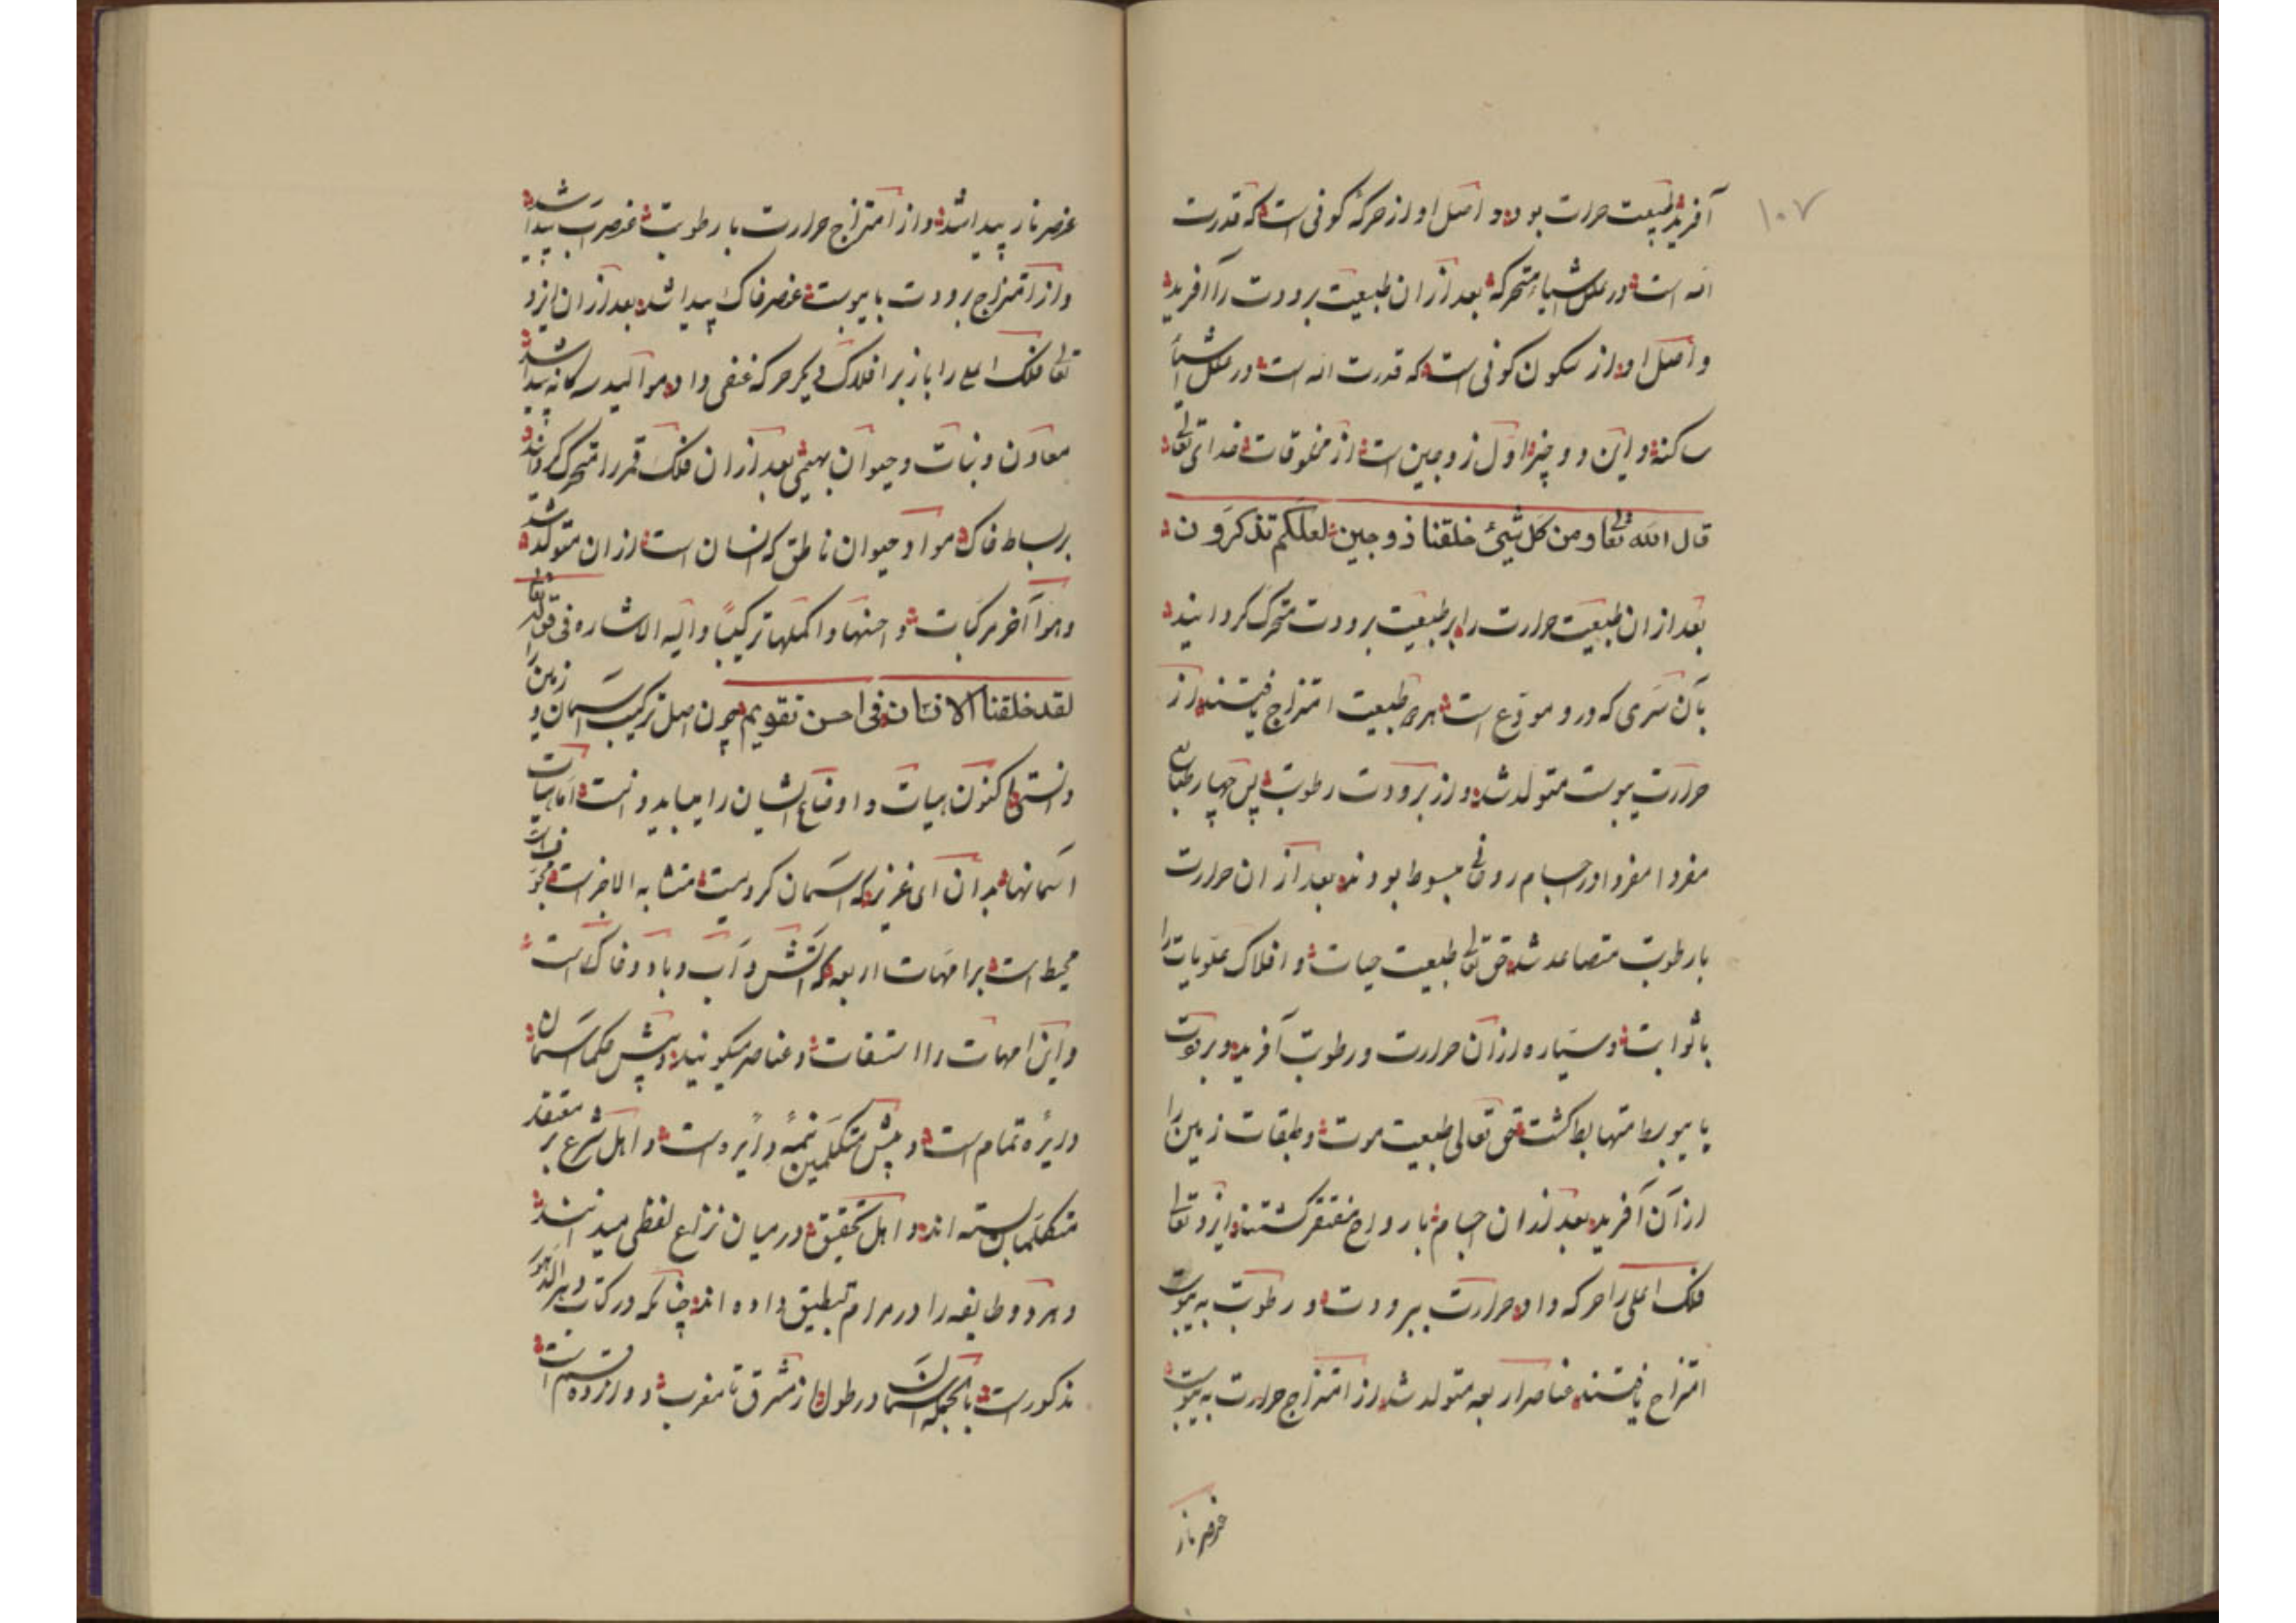 ۱۰۷
آفرید طبیعت حرارت بود و اصل او از حرکهٔ کونی است که قدرت
الله است در علل اشیاء متحرکه بعد از ان طبیعت برودت را آفرید
و اصل او از سکون کونی است که قدرت الله است در علل اشیاء
ساکنه و این دو چیز اول زوجین است از مخلوقات خدای تعالی
قال الله تعالی ومن کل شیئ خلقنا زوجین لعلکم تذکرون
بعد از ان طبیعت حرارت را بر طبیعت برودت متحرک کردانید
بآن سری که درو مودع است هر دو طبیعت امتزاج یافتند از
حرارت یبوست متولد شد و از برودت رطوبت پس چهار طبایع
مفردا مفردا در اجسام روحانی مبسوط بودند بعد از ان حرارت
با رطوبت متصاعد شد حق تعالی طبیعت حیات و افلاک علویات را
با ثوابت و سیاره از ان حرارت و رطوبت آفرید و برودت
با یبوسط متهابط کشت حق تعالی طبیعت موت و طبقات زمین را
از آن آفرید بعد از ان اجسام با رواح مفتقر کشتند ایزد تعالی
فلک اعلی را حرکه داد حرارت ببرودت و رطوبت به یبوست
امتزاج یافتند عناصر اربعه متولد شد از امتزاج حرارت به یبوست
عنصر نار
عنصر نار پیدا شد و از امتزاج حرارت با رطوبت عنصر آب پیدا شد
و از امتزاج برودت با یبوست عنصر خاک پیدا شد بعد از ان ایزد
تعالی فلک اعلی را باز بر افلاک دیکر حرکه عنفی داد موالید سه کانه پیدا شد
معادن و نبات و حیوان بهیمی بعد از ان فلک قمر را متحرک کردانید
بر بساط خاک مواد حیوان ناطق که انسان است از ان متولد شد
وهو آخر مرکبات و احسنها و اکملها ترکیبا و الیه الاشاره فی قوله تعالی
لقد خلقنا الانسان فی احسن تقویم چون اصل ترکیب آسمان و زمین را
دانستی اکنون هیات و اوضاع ایشان را میباید دانست اما هیات
آسمانها بدان ای عزیز که آسمان کرویست متشابه الاجزاست مجوف است
محیط است بر امهات اربعه که آتش و آب و باد و خاک است
و این امهات را استقسات و عناصر میکویند و پیش حکما آسمان
دایره تمام است و پیش متکلمین نیمه دایره است و اهل شرع بر معتقد
متکلمان بسته اند و اهل تحقیق درمیان نزاع لفظی میدانند
و هر دو طایفه را در مرام تطبیق داده اند چنانکه در کتاب
مذکور است بالجمله آسمان در طول از مشرق تا مغرب دوازده قسم است